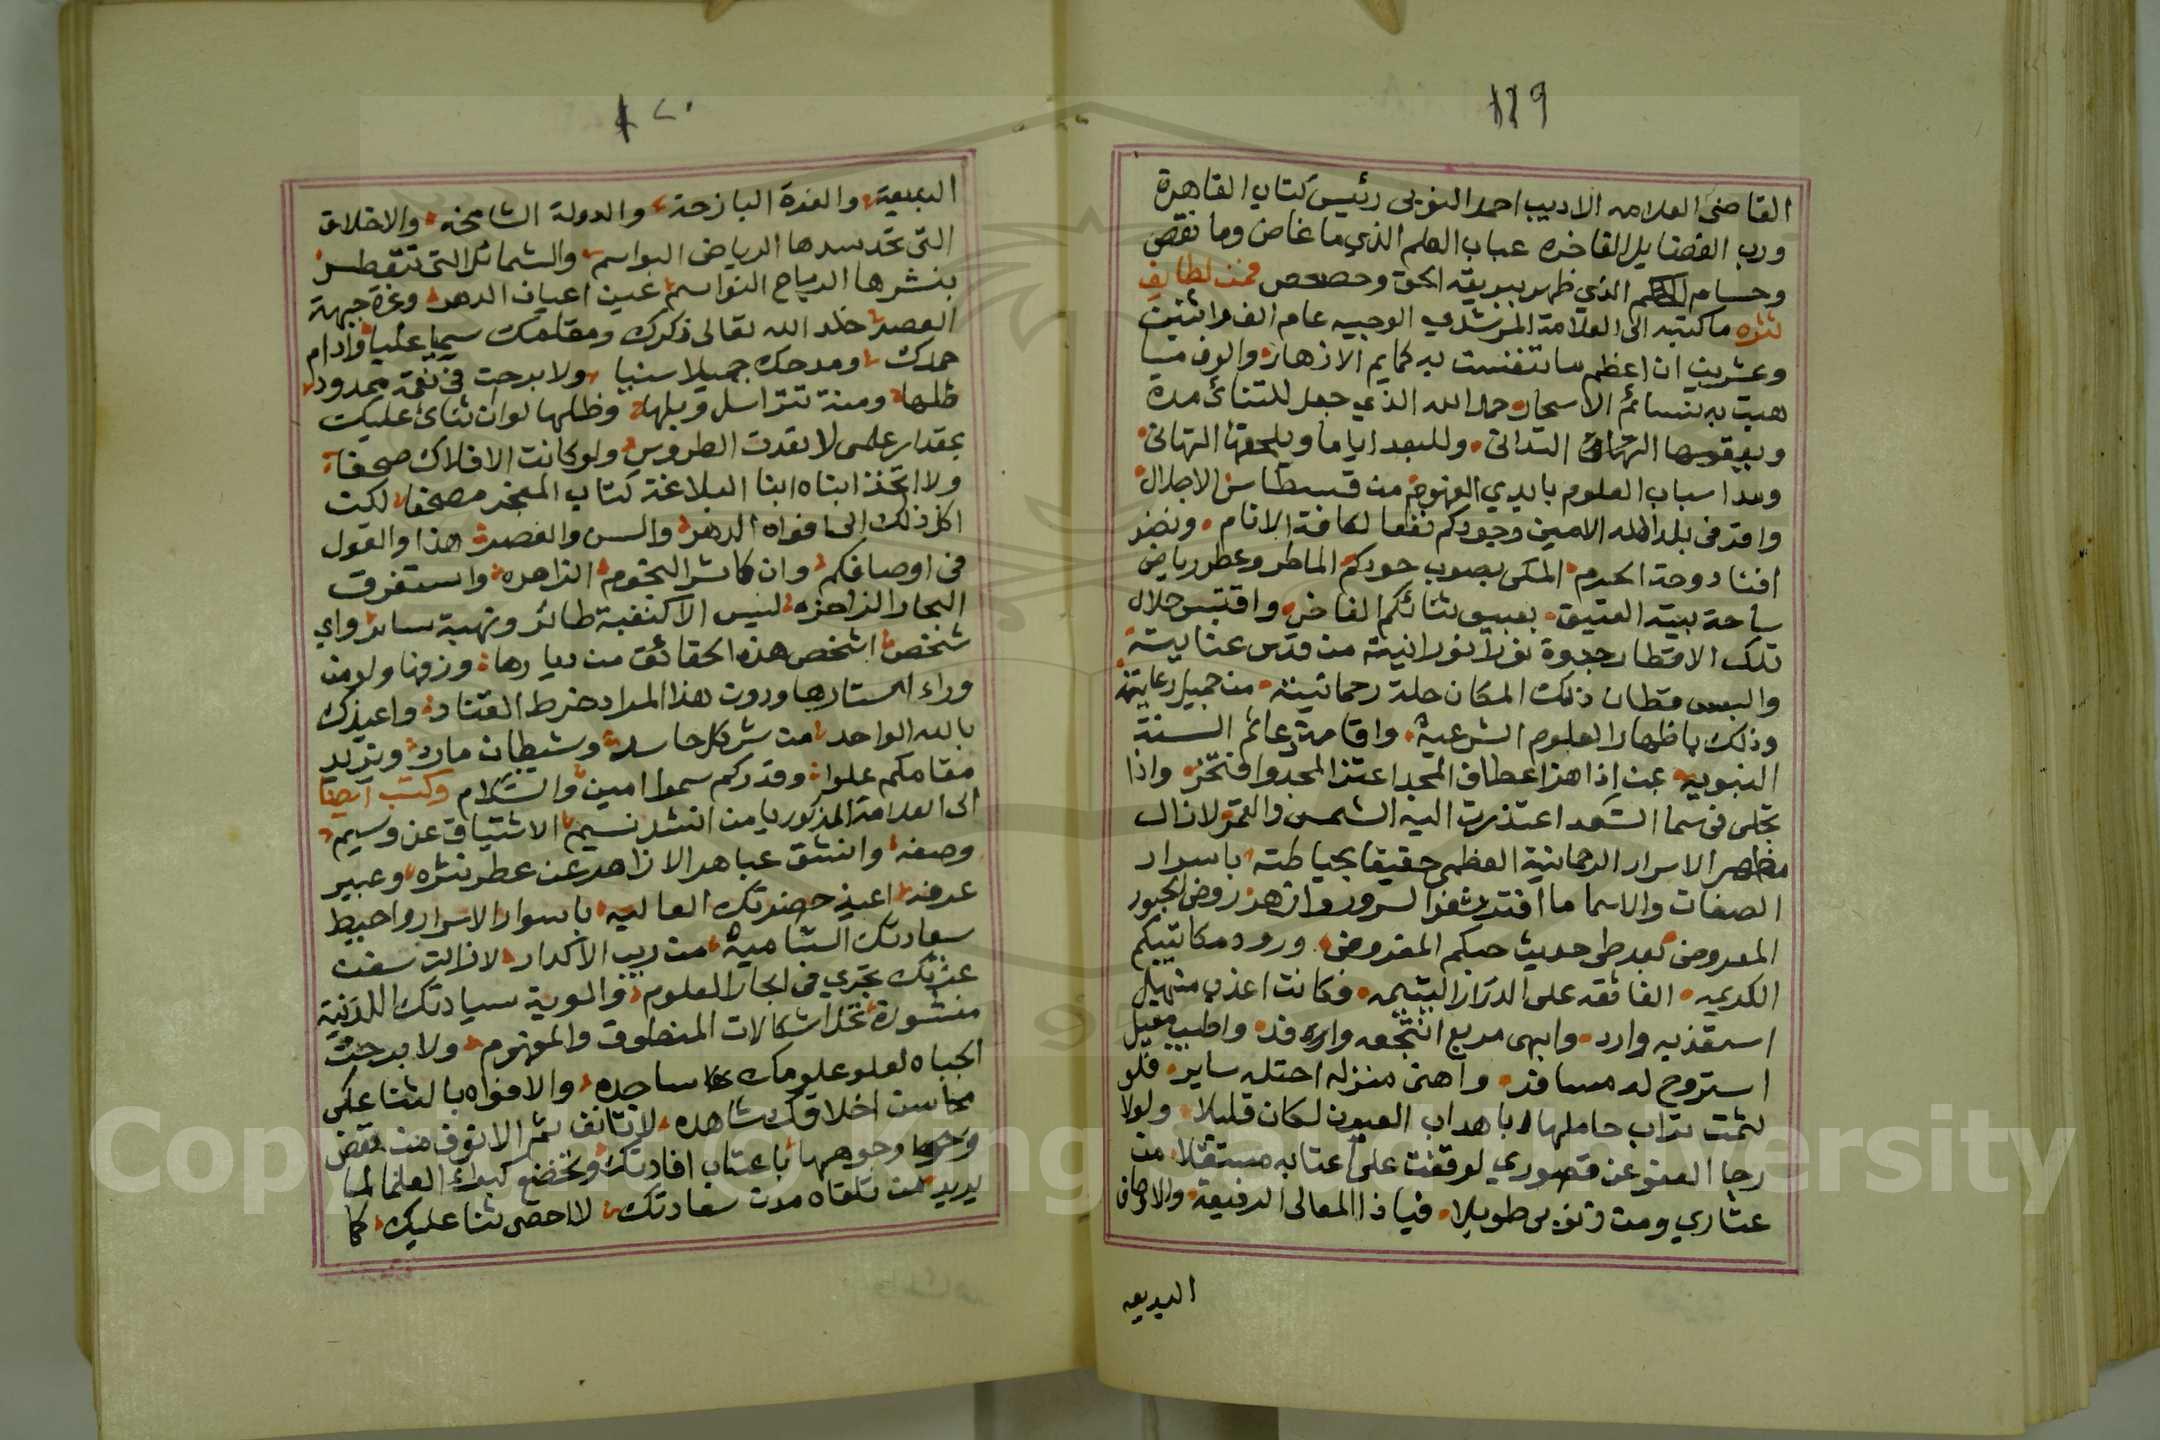 ١١٩
القاضي العلامه الاديب احمد النوبى رئيس كتاب القاهرة
ورب الفضايل الفاخره عباب العلم الذي ما غاض وما نقص
وحسام الذي ظهر ببريقه الحق وحصحص فمن لطايف
نثره ما كتبه الى العلامة المرشدي الوجيه عام الف واثنين
وعشرين ان اعظم ما تنفست به كمايم الازهار والوف
هبت به نسائم الاسحار حمد الله الذي جعل للتنائي مدة
ويعقبها التدانى وللبعد اياما ويلحقها التهانى
ومد اسباب العلوم بايدي الفهوم من قسطاس الاجلال
واقر فى بلد الله الامين وجودكم نفعا لكافة الانام ونضر
افنا دوحة الحرم المكى بصوب جودكم الماطر وعطر رياض
ساحة بيته العتيق بعبيق ثنائكم الفاخر واقتبس خلال
تلك الاقطار جدوة نور نورانيته من قدس عنايته
والبس قطان ذلك المكان حلة رحمانيته من جميل رعايته
وذلك باظهار العلوم الشرعية واقامة دعائم السنة
النبويه عن اذا هز اعطاف المجد اعتز المجد وافتخر واذا
تجلى فى سما السعد اعتذرت اليه الشمس والقمر لا زال
مظاهر الاسرار الرحمانية العظمى حقيقا بحياطته باسرار
الصفات والاسما ما افتر ثغر السرور وازهر روض الحبور
المعروض بعد طى حديث حبكم المفروض ورود مكاتيبكم
الكريمه الفائقه على الدرار اليتيمه فكانت اعذب منهل
استعذبه وارد وابهى مربع انتجعه وافد واطيب مقيل
استروح له مسافر واهنى منزله احتله ساير فلو
لثمت تراب حاملها باهداب العيون لكان قليلا ولولا
رجا العفو عن قصوري لوقفت على اعتابه مستقلا من
عثاري ومن ذنوبى طويلا فياذا المعالى الرفيعة والاوصاف
البديعه
١٢٠
البديعية والغرة البازخة والدولة الشامخه والاخلاق
التى تحسدها الرياض البواسم والشمائل التى تتعطر
بنشرها الرياح النواسم عين اعيان الدهر وغرة جبهة
العصر خلد الله تعالى ذكرك ومقامك سميا عليا وادام
حمدك ومدحك جميلا سنيا ولا برحت فى نعمة ممدود
ظلها ومنة تترا سل وبلها وظلها لو ان ثنائي عليك
بمقدار علمى لانفدت الطروس ولو كانت الافلاك صحفا
ولا اتخذ ابناه ابنا البلاغة كتاب المجد مصحفا لكن
اكل ذلك الى افواه الدهر والسن العصر هذا والقول
فى اوصافكم وان كاثر النجوم الزاهره واستغرق
البحار الزاخره ليس الا كنغبة طائر ونهبة ساير واي
شخص اشخص هذه الحقائق من ديارها وزفها ولو من
وراء استارها ودون هذا المراد خرط القتاد واعيذك
بالله الواحد من شر كل حاسد وشيطان مارد ونريد
مقامكم علوا وقدركم سموا امين والسلام وكتب ايضا
الى العلامة المذكور يا من انشد نسيم الاشتياق عن وسيم
وصفه وانشق عباهر الازاهر عن عطر نشره وعبير
عرفه اعيذ حضرتك العاليه باسوار الاسرار واحيط
سعادتك السامية من ريب الاكدار لا زالت سفن
عزتك تجري فى ابحار العلوم والوية سيادتك اللدنية
منشورة تحل اشكالات المنطوق والمفهوم ولا برحت
الجباه لعلو علومك ساجده والافواه بالثنا على
محاسن اخلاقك شاهده لا تانف شم الانوف من نقض
وجوهها باعتاب افادتك وتخضع كبراء العلما لما
يريد من تلقاه مدن سعادتك لا احصى ثنا عليك كما